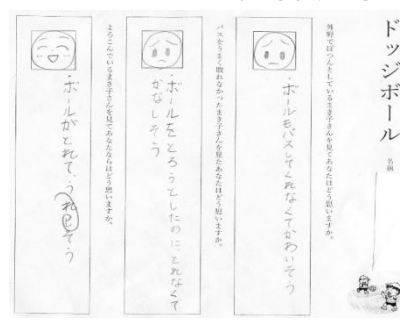 ドッジボール
名前
外野でぽつんとしているまき子さんを見てあなたはどう思いますか。
・ボールもパスしてくれなくてかわいそう
パスをうまく取れなかったまき子さんを見たあなたはどう思いますか。
・ボールをとろうとしたのに、とれなくて
かなしそう
よろこんでいるまき子さんを見てあなたならはどう思いますか。
・ボールがとれて、うれしそう